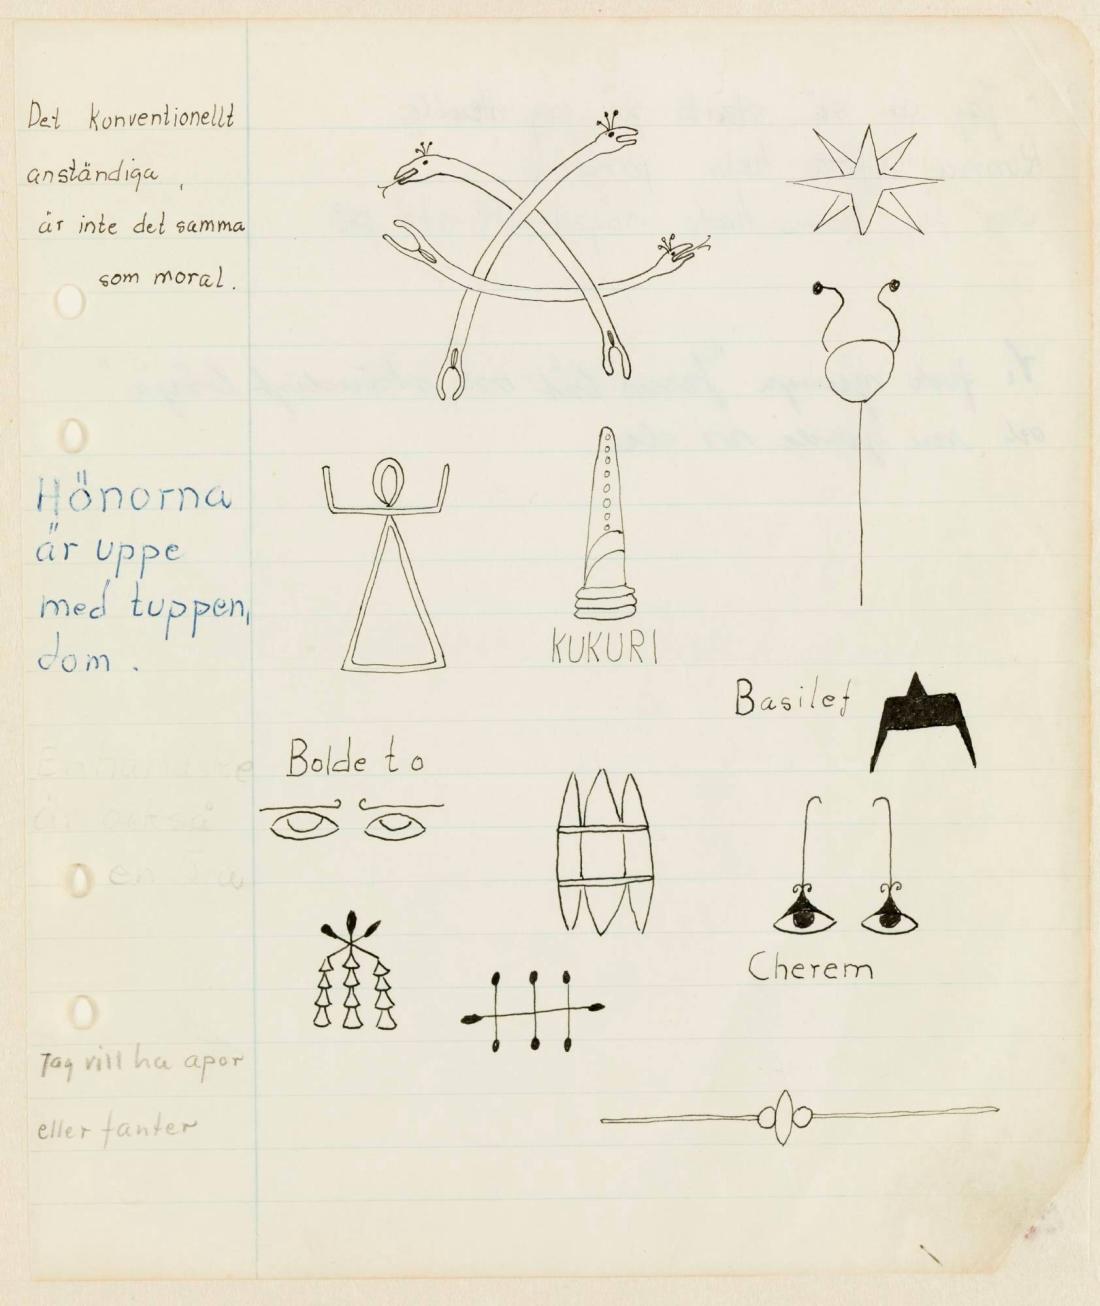 Det konventionellt
anständiga,
är inte det samma
som moral.
Hönorna
är uppe
med tuppen,
dom.
KUKURI
Basilef
Bolde to
är också
en
Cherem
Jag vill ha apor
eller fanter